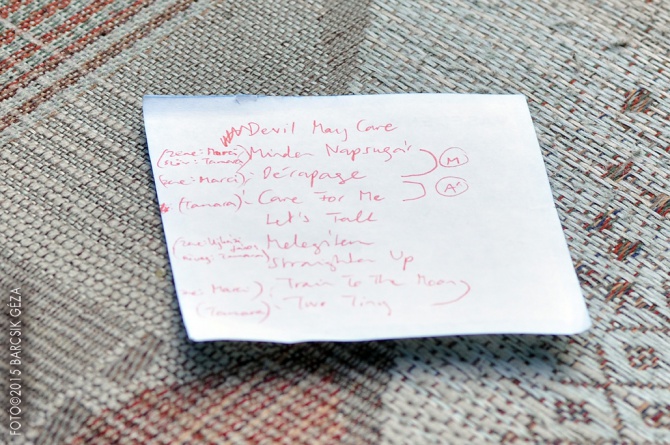 Devil May Care
(zene: Marci, szöv: Tamara) Minden Napsugár
(zene: Marci): Dérapage
M
(Tamara): Care For Me
A'
Let's Talk
Melegítem
Straighten Up
Marci): Train To The Moon
(Tamara): Two Tiny
FOTO©2015 BARCSIK GÉZA